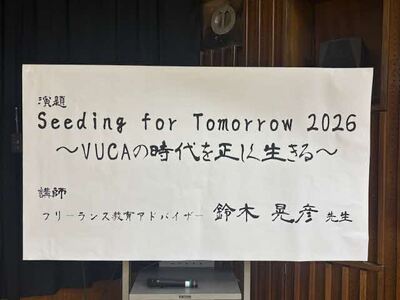 演題
Seeding for Tomorrow 2026
～VUCAの時代を正に生きる～
講師
フリーランス教育アドバイザー 鈴木 晃彦 先生